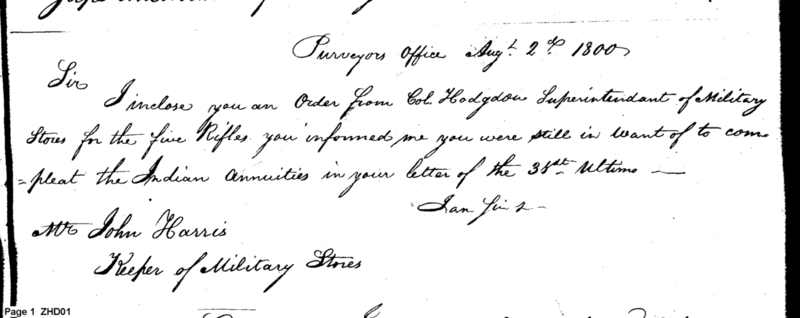 Purveyors Office Augt. 2d. 1800
Sir
I inclose you an Order from Col. Hodgdon Superintendant of Military
Stores for the five Rifles you informed me you were still in want of to com
=pleat the Indian Annuities in your letter of the 31st. Ultimo
I am Sir &
Mr. John Harris
Keeper of Military Stores
Page 1 ZHD01